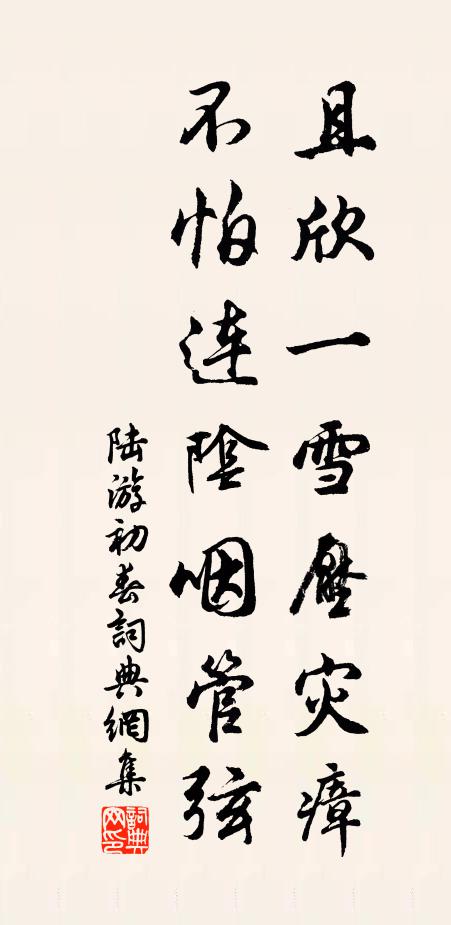 且欣一雪壓灾瘴
不怕連陰咽管弦
陸游初春詞典網集
詞典网印